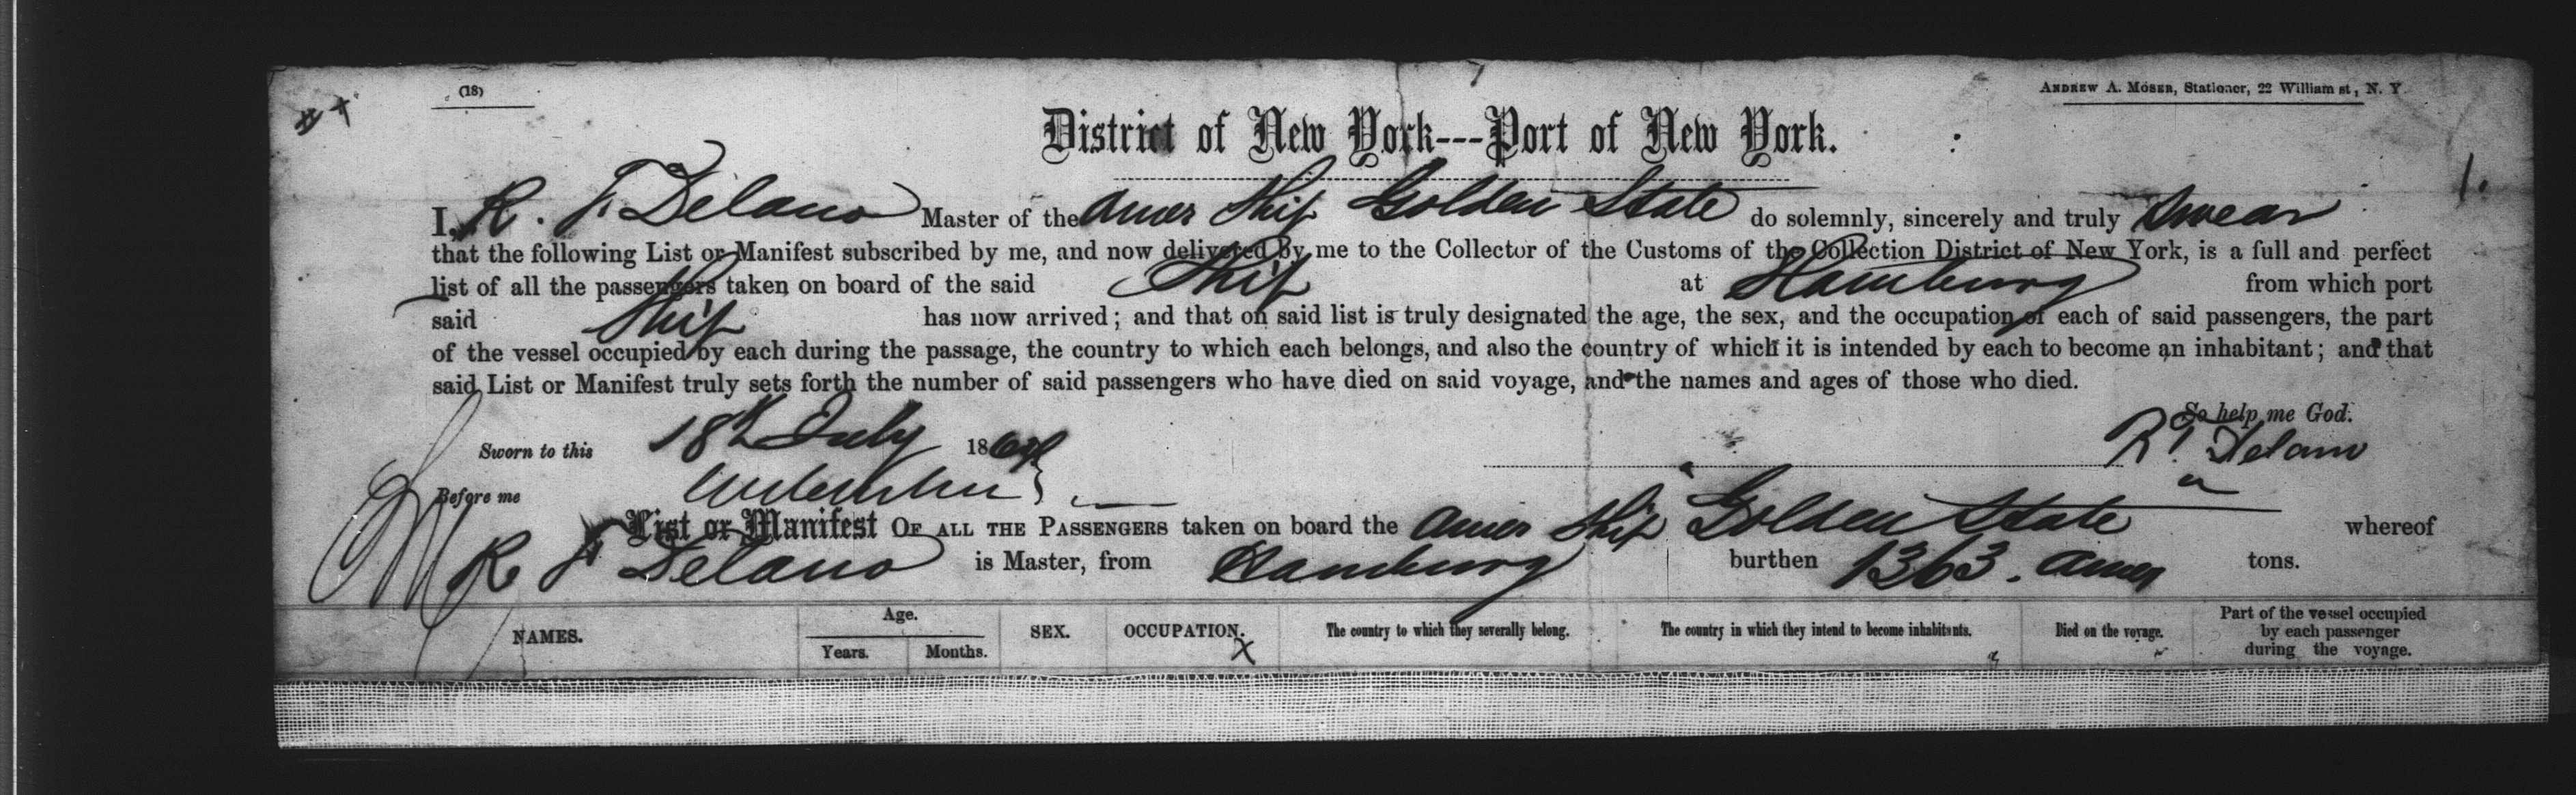 (18)
ANDREW A. MOSER, Stationer, 22 William st, N. Y.
District of New York---Port of New York.
1.
I, R. F. Delano Master of the Amer Ship Golden State do solemnly, sincerely and truly swear
that the following List or Manifest subscribed by me, and now delivered by me to the Collector of the Customs of the Collection District of New York, is a full and perfect
list of all the passengers taken on board of the said Ship at Hamburg from which port
said Ship has now arrived; and that on said list is truly designated the age, the sex, and the occupation of each of said passengers, the part
of the vessel occupied by each during the passage, the country to which each belongs, and also the country of which it is intended by each to become an inhabitant; and that
said List or Manifest truly sets forth the number of said passengers who have died on said voyage, and the names and ages of those who died.
So help me God.
Sworn to this 18th July 1864 R F Delano
Before me
List or Manifest OF ALL THE PASSENGERS taken on board the Amer Ship Golden State whereof
R F Delano is Master, from Hamburg burthen 1363. Amer tons.
NAMES. Age. Years. Months. SEX. OCCUPATION. The country to which they severally belong. The country in which they intend to become inhabitants. Died on the voyage. Part of the vessel occupied by each passenger during the voyage.